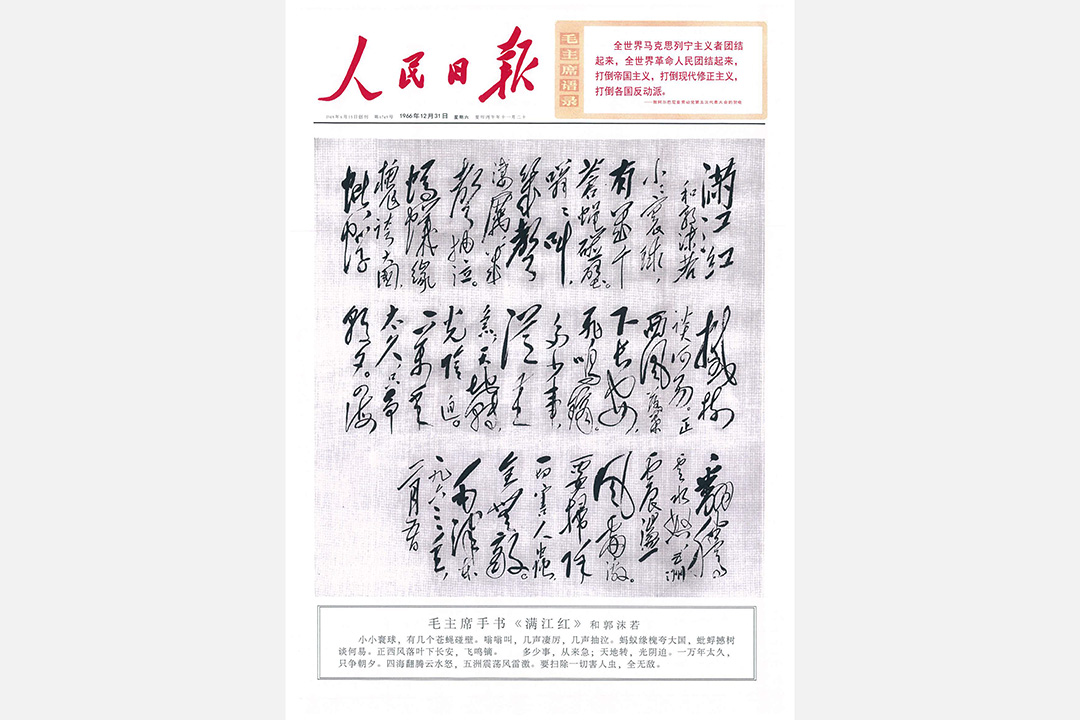 人民日報
毛主席语录
全世界马克思列宁主义者团结
起来，全世界革命人民团结起来，
打倒帝国主义，打倒现代修正主义，
打倒各国反动派。
1966年12月31日 星期六
滿江紅
和郭沫若
小小寰球，
有几个
蒼蝇碰壁。
嗡嗡叫，
几聲
凄厲，几
聲抽泣。
螞蟻缘
槐誇大國，
蚍蜉
撼树
谈何易。正
西风落葉
下长安，
飞鸣镝。
多少事，
從来
急；天地转，
光陰迫。
一萬年
太久，只争
朝夕。四海
翻騰
雲水怒，五洲
震盪
风雷激。
要掃除
一切害人虫，
全無敵。
毛泽东
一九六三年
毛主席手书《满江红》和郭沫若
小小寰球，有几个苍蝇碰壁。嗡嗡叫，几声凄厉，几声抽泣。蚂蚁缘槐夸大国，蚍蜉撼树
谈何易。正西风落叶下长安，飞鸣镝。 多少事，从来急；天地转，光阴迫。一万年太久，
只争朝夕。四海翻腾云水怒，五洲震荡风雷激。要扫除一切害人虫，全无敌。